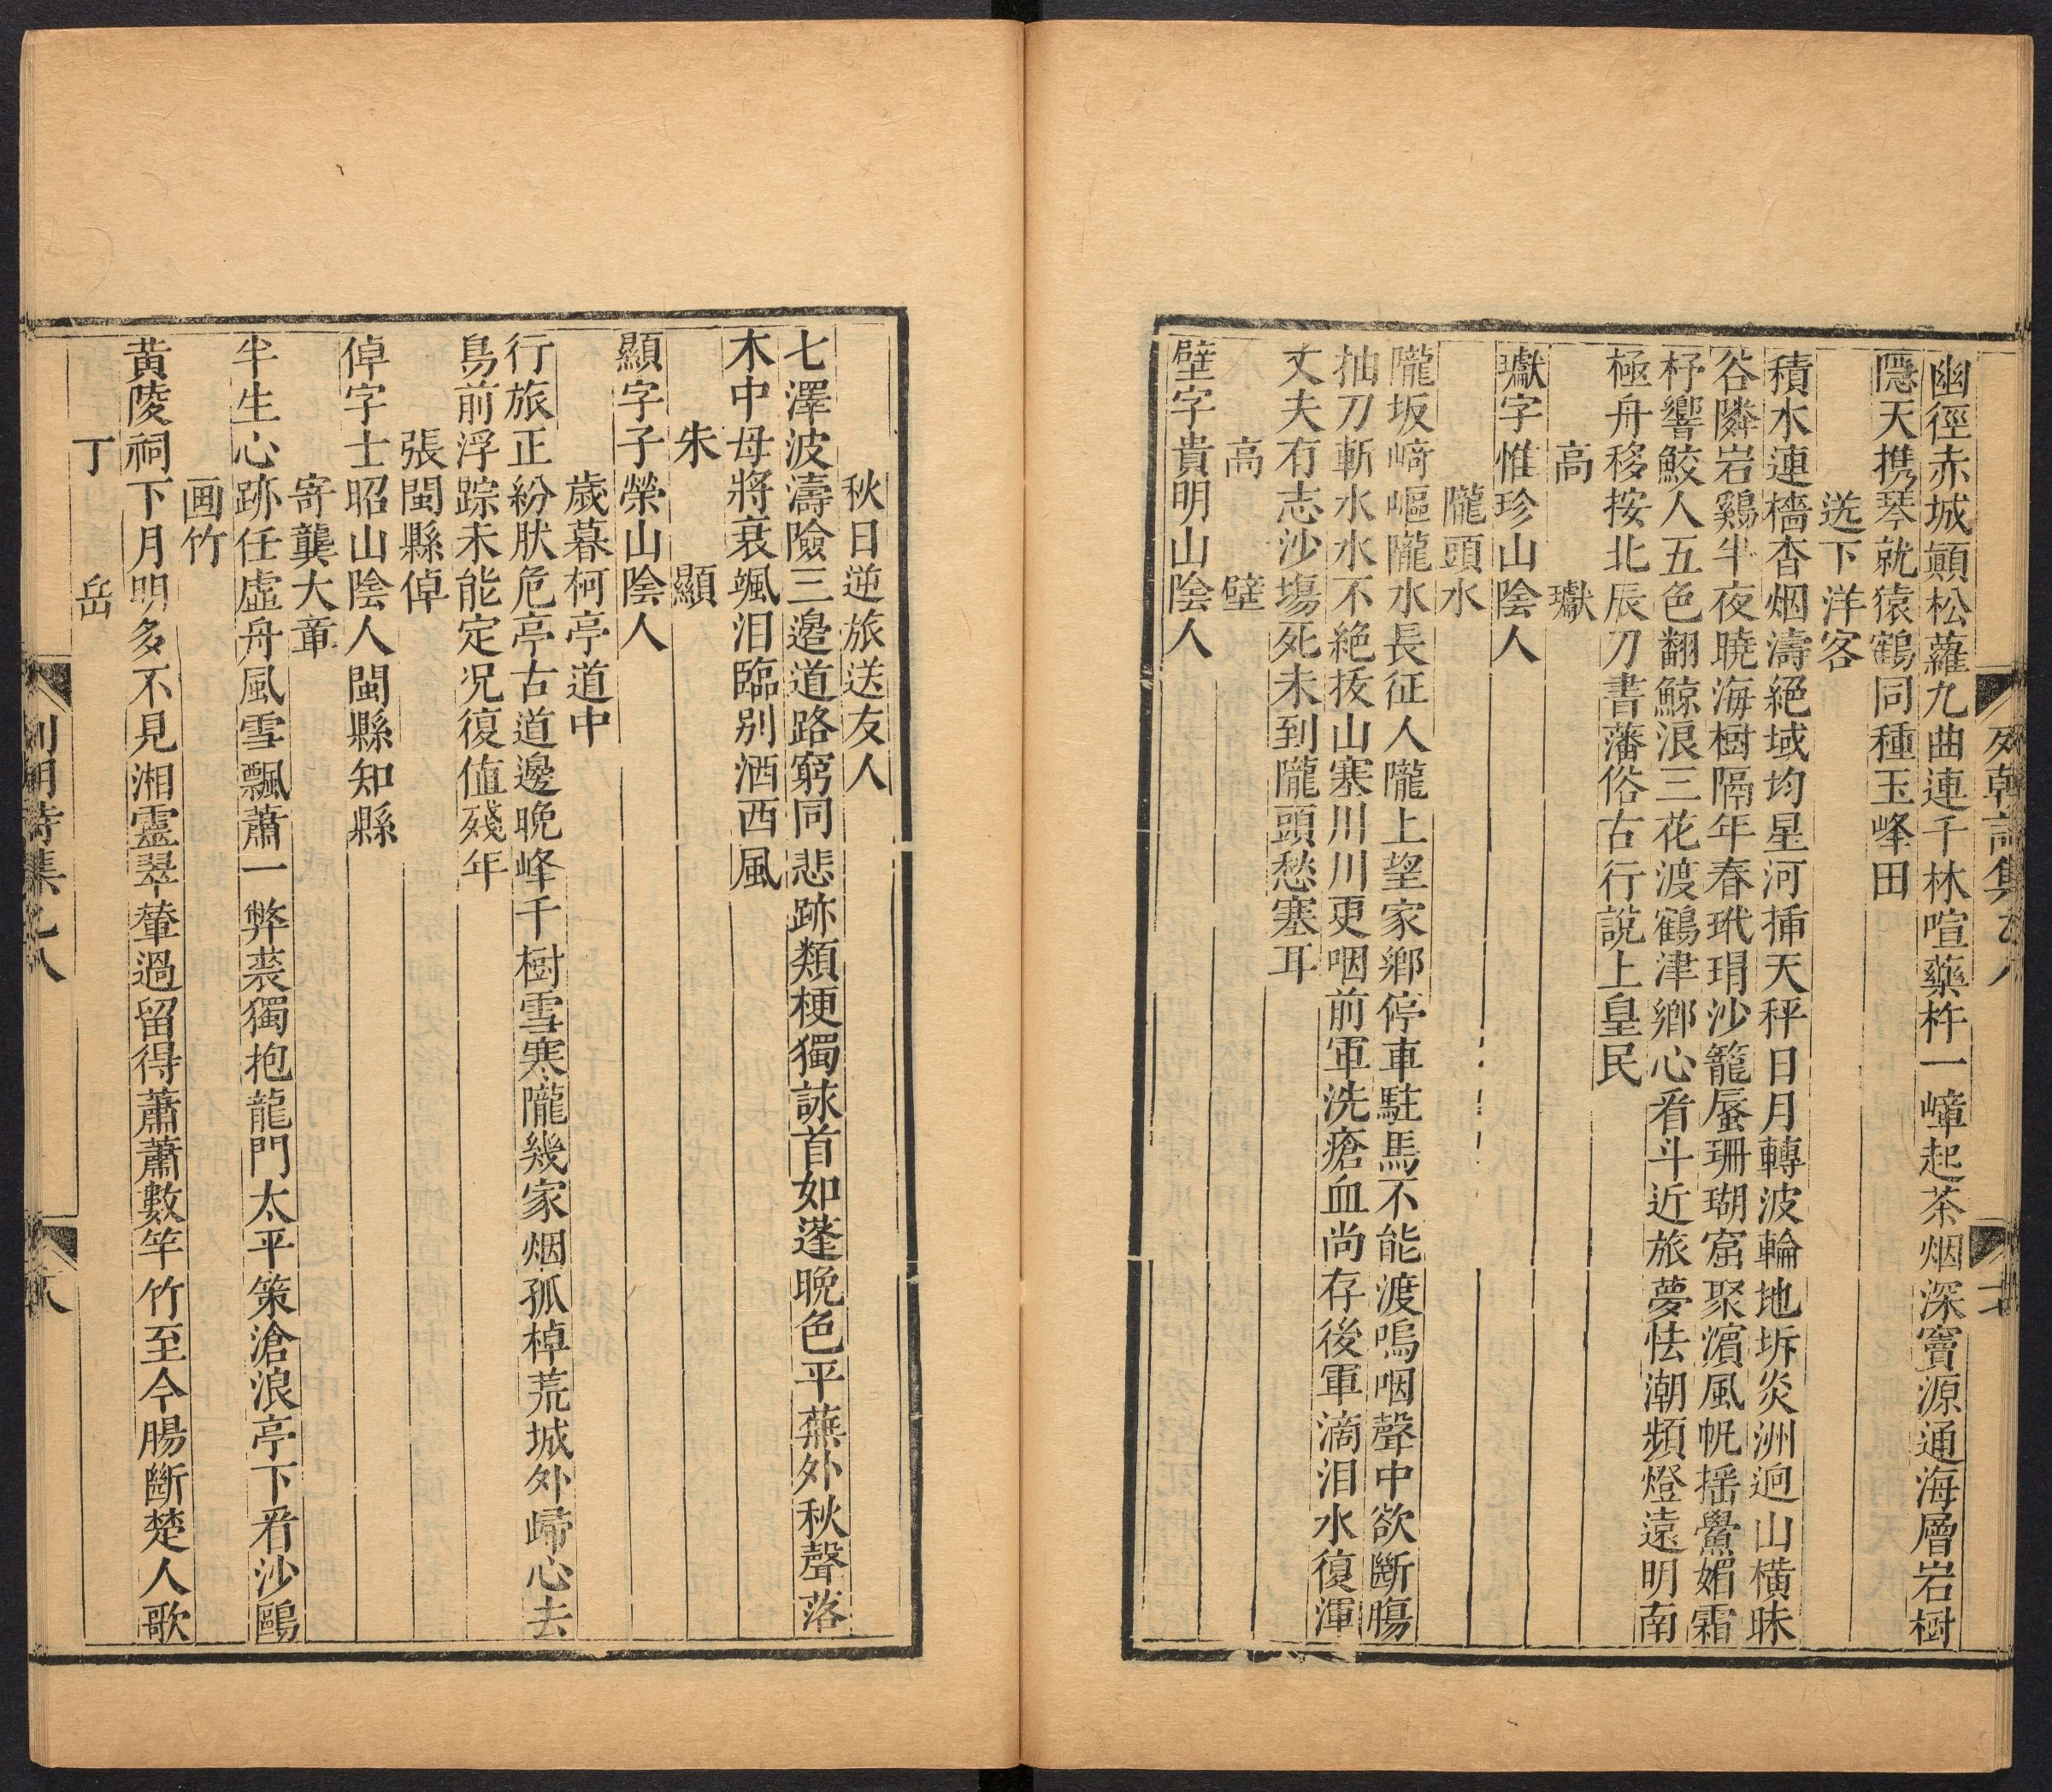 列朝詩集乙八
十七
幽徑赤城顛松蘿九曲連千林喧藥杵一嶂起茶烟深竇源通海層岩樹
隱天携琴就猿鶴同種玉峰田
送下洋客
積水連檣杳烟濤絕域均星河揷天秤日月轉波輪地坼炎洲迥山橫昧
谷隣岩鷄半夜曉海樹隔年春玳瑁沙籠蜃珊瑚窟聚濵風帆揺鱟媚霜
杼響鮫人五色翻鯨浪三花渡鶴津鄉心看斗近旅夢怯潮頻燈遠明南
極舟移按北辰刀書藩俗古行說上皇民
高　　瓛
瓛字惟珍山陰人
隴頭水
隴坂﨑嶇隴水長征人隴上望家鄉停車駐馬不能渡嗚咽聲中欲斷膓
抽刀斬水水不絶抜山塞川川更咽前軍洗瘡血尚存後軍滴泪水復渾
丈夫有志沙塲死未到隴頭愁塞耳
高　　壁
壁字貴明山陰人
秋日逆旅送友人
七澤波濤險三邉道路窮同悲跡類梗獨詠首如蓬晚色平蕪外秋聲落
木中母將衰颯泪臨别洒西風
朱　　顯
顯字子榮山陰人
歲暮柯亭道中
行旅正紛肰危亭古道邊晚峰千樹雪寒隴幾家烟孤棹荒城外歸心去
鳥前浮踪未能定况復值殘年
張閩縣倬
倬字士昭山陰人閩縣知縣
寄龔大章
半生心跡任虛舟風雪飄蕭一弊裘獨抱龍門太平策滄浪亭下看沙鷗
画竹
黄陵祠下月明多不見湘靈翠輦過留得蕭蕭數竿竹至今腸斷楚人歌
丁　　岳
列朝詩集乙八